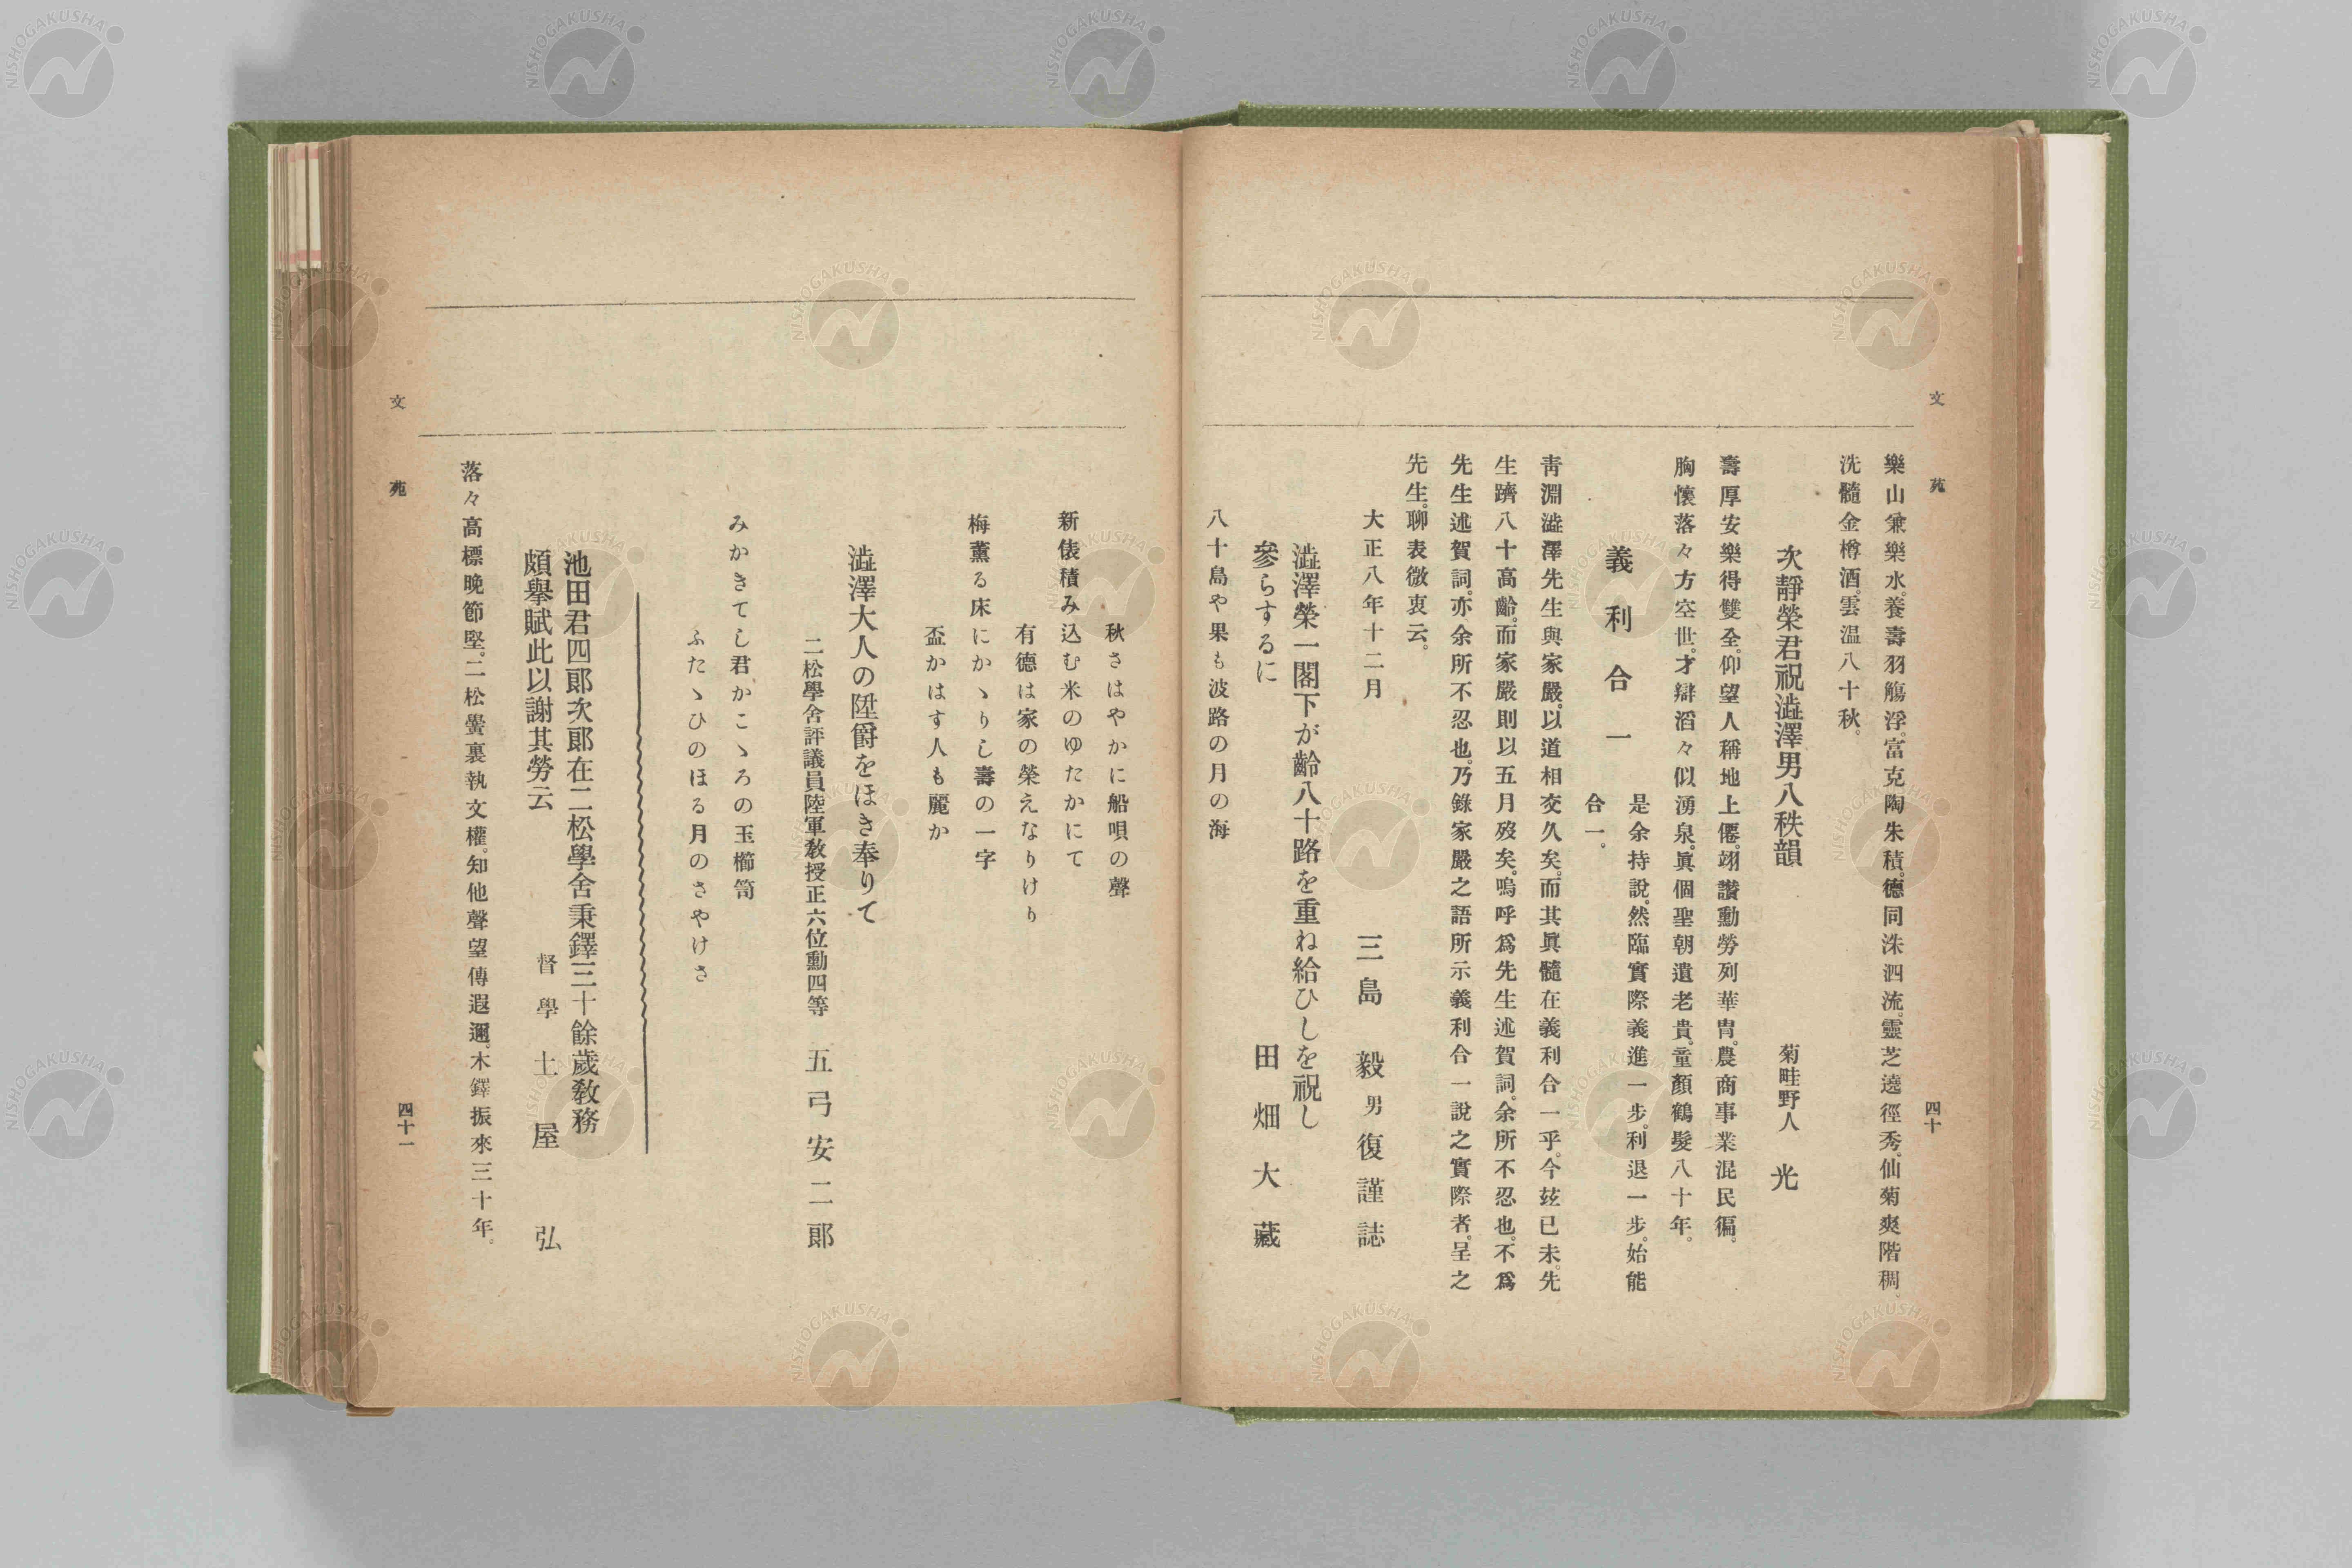 文苑
四十
樂山兼樂水。養壽羽觴浮。富克陶朱積。德同洙泗流。靈芝遶徑秀。仙菊爽階稠。
洗髓金樽酒。雲温八十秋。
次靜榮君祝澁澤男八秩韻
菊畦野人 光
壽厚安樂得雙全。仰望人稱地上僊。翊讚勳勞列華冑。農商事業混民徧。
胸懷落々方空世。才辯滔々似湧泉。眞個聖朝遺老貴。童顏鶴髮八十年。
義利合一
是余持說。然臨實際義進一步。利退一步。始能
合一。
靑淵澁澤先生與家嚴。以道相交久矣。而其眞髓在義利合一乎。今玆已未。先
生躋八十高齡。而家嚴則以五月歿矣。嗚呼爲先生述賀詞。余所不忍也。不爲
先生述賀詞。亦余所不忍也。乃錄家嚴之語所示義利合一說之實際者。呈之
先生。聊表微衷云。
大正八年十二月
三島毅男復謹誌
澁澤榮一閣下が齡八十路を重ね給ひしを祝し
參らするに
田畑大藏
八十島や果も波路の月の海
秋さはやかに船唄の聲
新俵積み込む米のゆたかにて
有德は家の榮えなりけり
梅薰る床にかゝりし壽の一字
盃かはす人も麗か
澁澤大人の陞爵をほき奉りて
二松學舍評議員陸軍敎授正六位勳四等 五弓安二郞
みかきてし君かこゝろの玉櫛笥
ふたゝひのほる月のさやけさ
池田君四郞次郞在二松學舍秉鐸三十餘歲敎務
頗擧賦此以謝其勞云
督學 土屋弘
落々高標晚節堅。二松黌裏執文權。知他聲望傳遐邇。木鐸振來三十年。
文苑
四十一
NISHOGAKUSHA